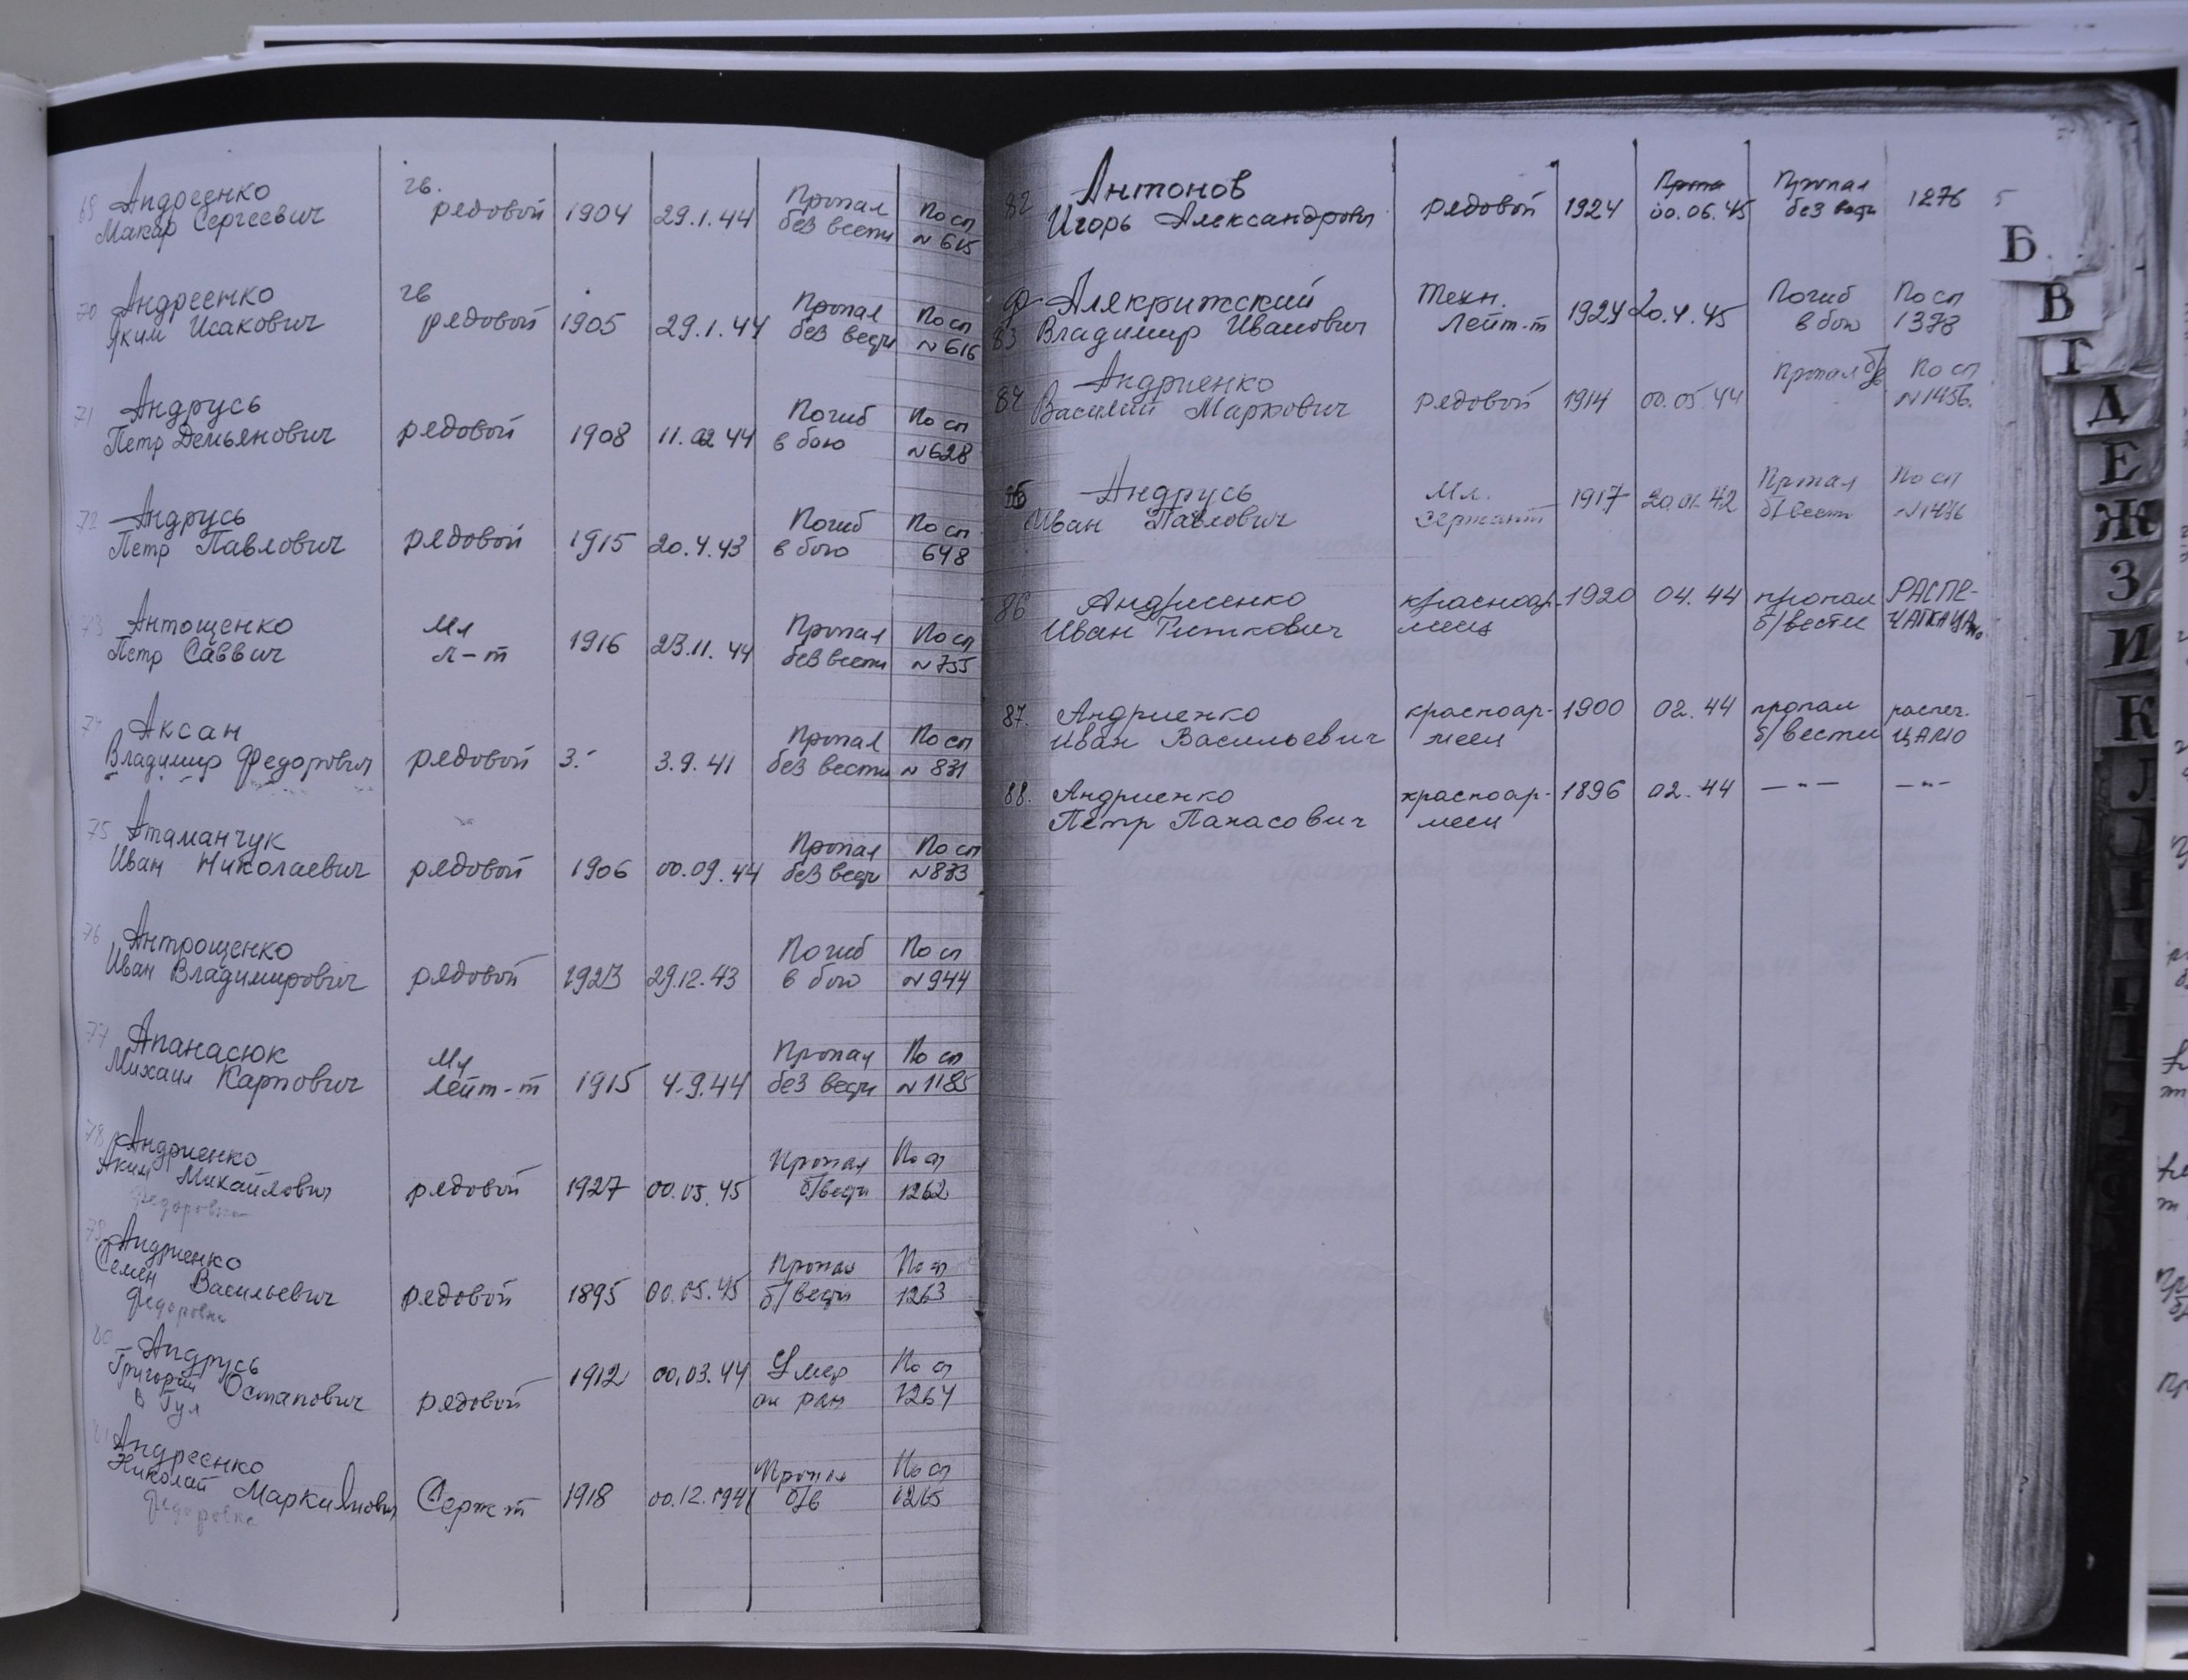 69 Андреенко гв. Пропал По сп
Макар Сергеевич рядовой 1904 29.1.44 без вести № 615
70 Андреенко гв Пропал По сп
Яким Исакович рядовой 1905 29.1.44 без вести № 616
71 Андрусь Погиб По сп
Петр Демьянович рядовой 1908 11.02 44 в бою № 628
72 Андрусь Погиб По сп
Петр Павлович рядовой 1915 20.4.43 в бою 648
73 Антощенко Мл Пропал По сп
Петр Саввич л-т 1916 23.11.44 без вести № 755
74 Аксан Пропал По сп
Владимир Федорович рядовой 3.- 3.9.41 без вести № 831
75 Атаманчук Пропал По сп
Иван Николаевич рядовой 1906 00.09.44 без вести № 833
76 Антрощенко Погиб По сп
Иван Владимирович рядовой 1923 29.12.43 в бою № 944
77 Апанасюк Мл Пропал По сп
Михаил Карпович лейт-т 1915 4.9.44 без вести № 1185
78 Андриенко Пропал По сп
Аким Михайлович рядовой 1927 00.05.45 б/вести 1262
79 Андриенко Пропал По сп
Семен Васильевич рядовой 1895 00.05.45 б/вести 1263
Федоровка
80 Андрусь 1912 00.03.44 Умер По сп
Григорий Остапович рядовой от ран 1264
в Гул
81 Андреенко Пропал По сп
Николай Маркиянович Серж-т 1918 00.12.1941 б/в 1265
Федоровка
82 Антонов Пропал
Игорь Александрович рядовой 1924 00.06.45 без вести 1276
Алякрижский Техн. Погиб По сп
83 Владимир Иванович Лейт-т 1924 20.4.45 в бою 1378
84 Андриенко Пропал б/в По сп
Василий Маркович рядовой 1914 00.05.44 № 1456.
85 Андрусь Мл. Пропал По сп
Иван Павлович Сержант 1917 20.01.42 б/вести № 1476
86 Андриенко красноар- 1920 04.44 пропал РАСПЕ-
Иван Титкович меец б/вести ЧАТКА ЦАМО
87. Андриенко красноар- 1900 02.44 пропал распеч.
Иван Васильевич меец б/вести ЦАМО
88. Андриенко красноар- 1896 02.44 —"— —"—
Петр Панасович меец
Б
В
Г
Д
Е
Ж
З
И
К
Л